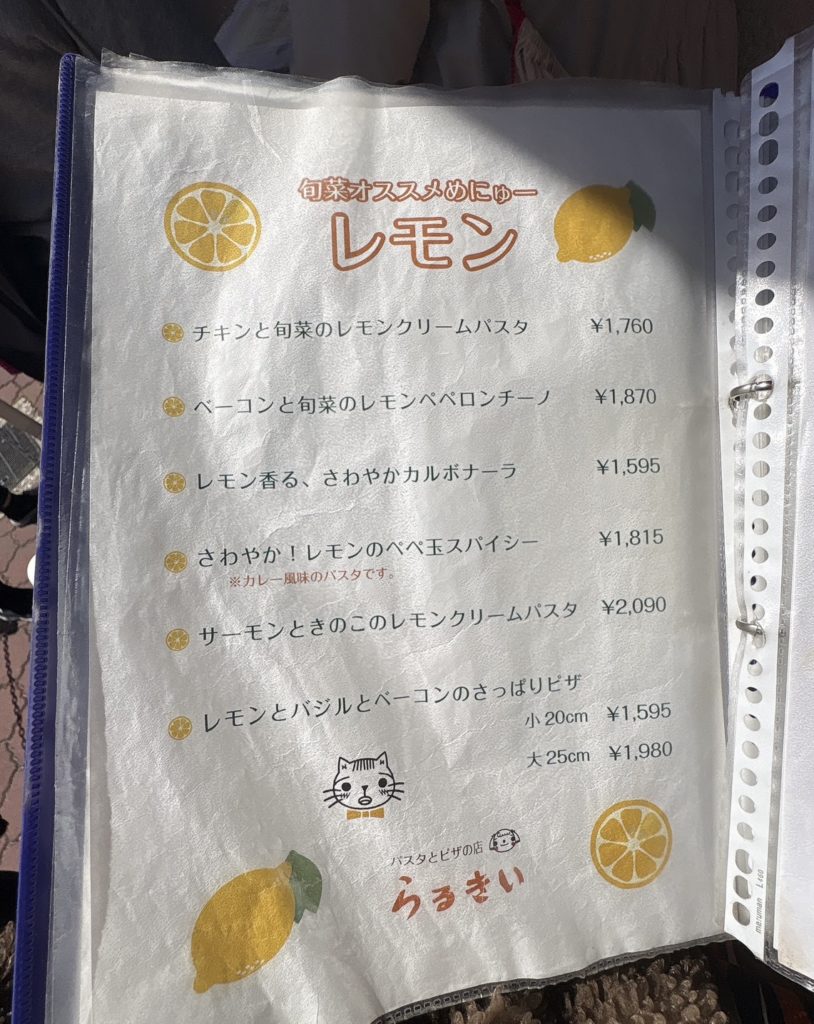 旬菜オススメめにゅー
レモン
チキンと旬菜のレモンクリームパスタ ¥1,760
ベーコンと旬菜のレモンペペロンチーノ ¥1,870
レモン香る、さわやかカルボナーラ ¥1,595
さわやか！レモンのペペ玉スパイシー ¥1,815
※カレー風味のパスタです。
サーモンときのこのレモンクリームパスタ ¥2,090
レモンとバジルとベーコンのさっぱりピザ
小20cm ¥1,595
大25cm ¥1,980
パスタとピザの店
らるきい
maruman L460